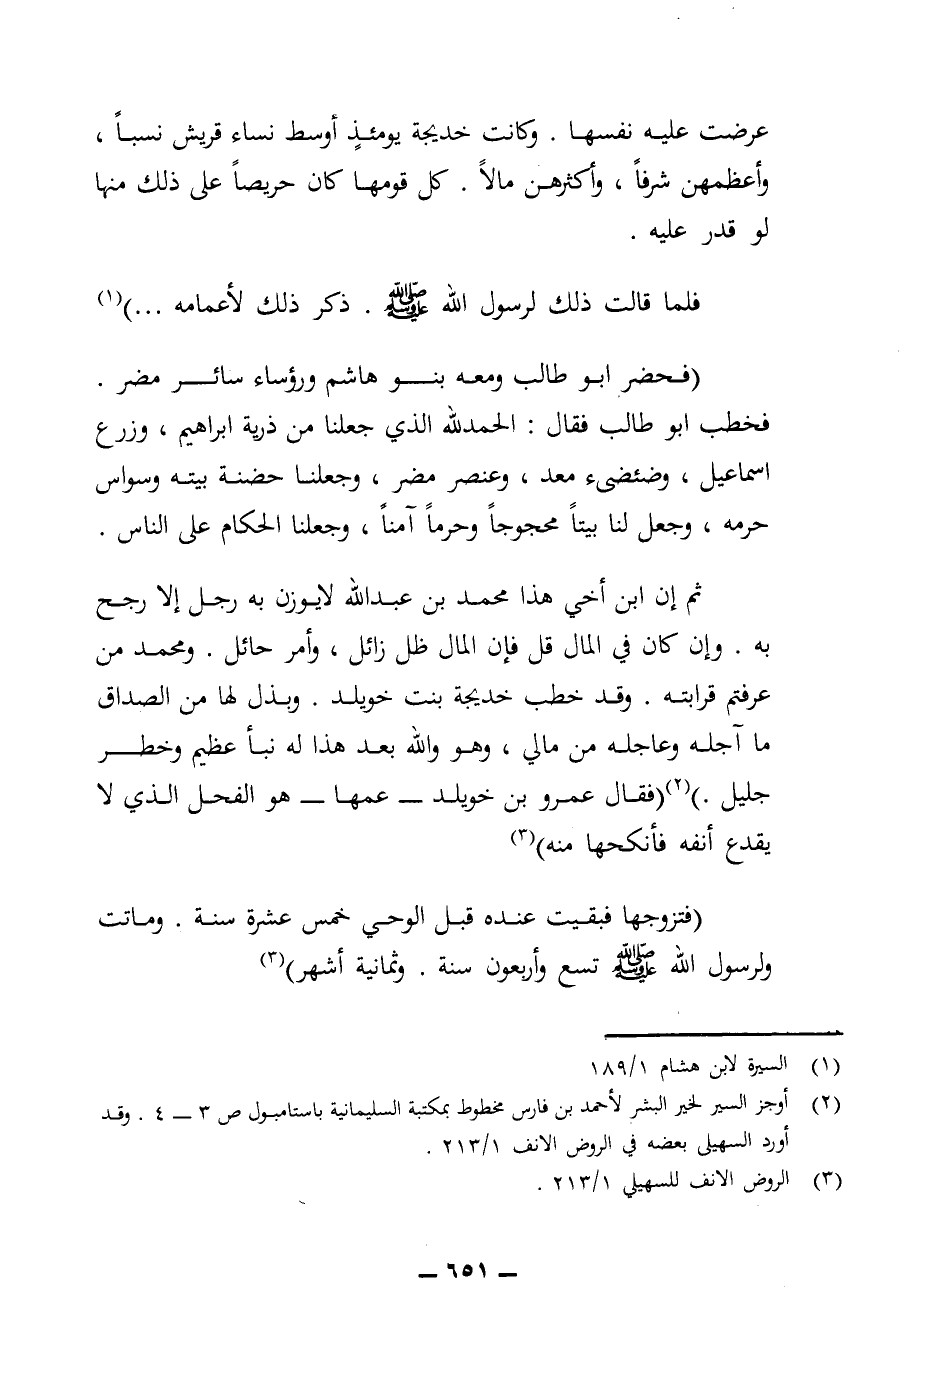 عرضت عليه نفسها . وكانت خديجة يومئذٍ أوسط نساء قريش نسباً ،
وأعظمهن شرفاً ، وأكثرهن مالاً . كل قومها كان حريصاً على ذلك منها
لو قدر عليه .
فلما قالت ذلك لرسول الله ﷺ . ذكر ذلك لأعمامه ...)(١)
(فحضر ابو طالب ومعه بنو هاشم ورؤساء سائر مضر .
فخطب ابو طالب فقال : الحمدلله الذي جعلنا من ذرية ابراهيم ، وزرع
اسماعيل ، وضئضىء معد ، وعنصر مضر ، وجعلنا حضنة بيته وسواس
حرمه ، وجعل لنا بيتاً محجوجاً وحرماً آمناً ، وجعلنا الحكام على الناس .
ثم إن ابن أخي هذا محمد بن عبدالله لايوزن به رجل إلا رجح
به . وإن كان في المال قل فإن المال ظل زائل ، وأمر حائل . ومحمد من
عرفتم قرابته . وقد خطب خديجة بنت خويلد . وبذل لها من الصداق
ما آجله وعاجله من مالي ، وهو والله بعد هذا له نبأ عظيم وخطر
جليل .)(٢)(فقال عمرو بن خويلد – عمها – هو الفحل الذي لا
يقدع أنفه فأنكحها منه)(٣)
(فتزوجها فبقيت عنده قبل الوحي خمس عشرة سنة . وماتت
ولرسول الله ﷺ تسع وأربعون سنة . وثمانية أشهر)(٣)
(١) السيرة لابن هشام ١/١٨٩
(٢) أوجز السير لخير البشر لأحمد بن فارس مخطوط بمكتبة السليمانية باستامبول ص ٣ – ٤ . وقد
أورد السهيلى بعضه في الروض الانف ١/٢١٣ .
(٣) الروض الانف للسهيلي ١/٢١٣ .
– ٦٥١ –